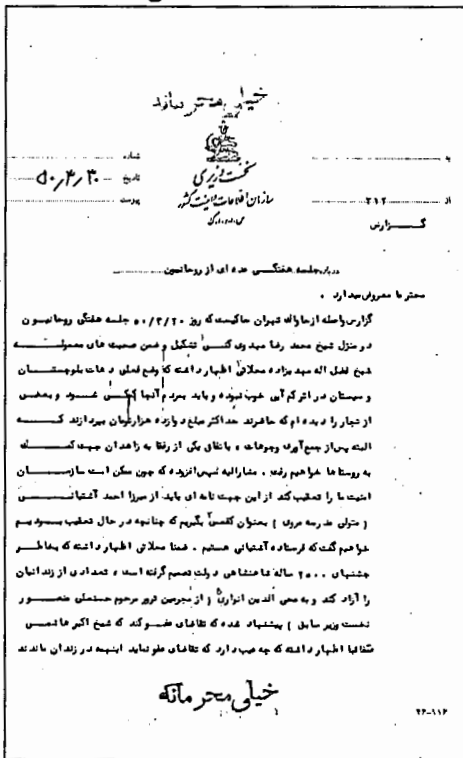 خیلی محرمانه
نخست وزیری
سازمان اطلاعات و امنیت کشور
س.ا.و.ا.ک
به
شماره
از ۳۱۲
تاریخ ۵۰/۴/۳۰
پیوست
گـــزارش
درباره جلسه هفتگـــی عده ای از روحانیون
محترما معروض میدارد .
گزارش واصله از ساواک تهران حاکیست که روز ۵۰/۳/۲۰ جلسه هفتگی روحانیـــون
در منزل شیخ محمد رضا مهدوی کنـــی تشکیل و ضمن صحبت های معمولـــه
شیخ فضل اله مهدیزاده محلاتی اظهار داشته که وضع فعلی دهات بلوچستـــان
و سیستان در اثر کم آبی خوب نبوده و باید بمردم آنجا کمکی شـــود و بعضی
از تجار را دیده ام که حاضرند حداکثر مبلغ دوازده هزار تومان بپردازند کـــه
البته پس از جمع آوری وجوهات با اتفاق یکی از رفقا به زاهدان جهت کمـــک
به روستاها خواهیم رفت . مشارالیه سپس افزوده که چون ممکن است سازمـــان
امنیت ما را تعقیب کند از این جهت نامه ای باید از میرزا احمد آشتیانـــی
( متولی مدرسه مروی ) بعنوان بگیریم که چنانچه در حال تعقیب بودیـــم
خواهیم گفت که فرستاده آشتیانی هستیم . ضمنا محلاتی اظهار داشته که بخاطـــر
جشنهای ۲۵۰۰ ساله شاهنشاهی دولت تصمیم گرفته است تعدادی از زندانیان
را آزاد کند و به محی الدین انواری ( از مجرمین ترور مرحوم حسنعلی منصـــور
نخست وزیر سابق ) پیشنهاد شده که تقاضای عفـــو کند که شیخ اکبر هاشمـــی
متقابلا اظهار داشته که چه عیب دارد که تقاضای عفو نماید اینهمه در زندان ماندند
خیلی محرمانه
۲۶-۱۱۶